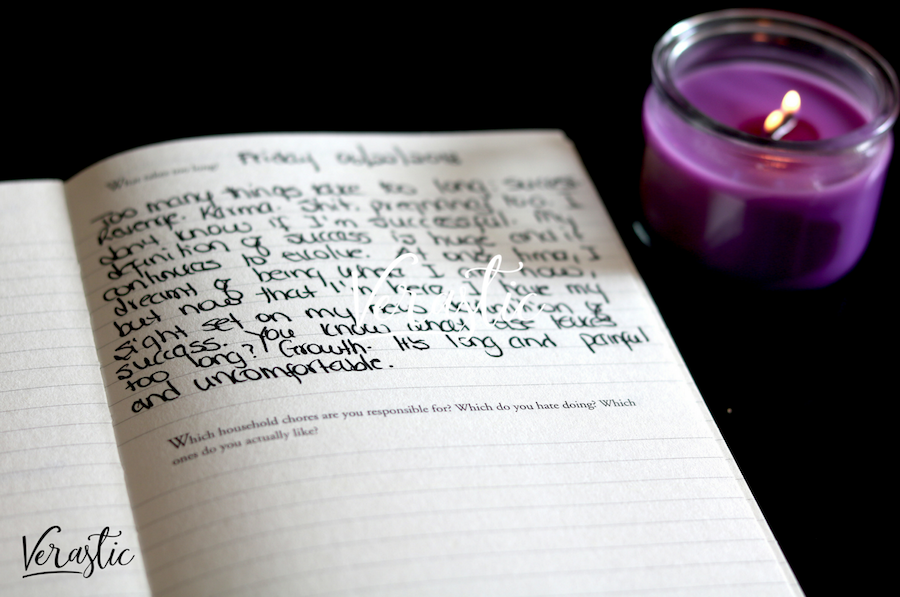 What takes too long?
Friday
Too many things take too long. Success.
Revenge. Karma. Shit, pregnancy too. I
don't know if I'm successful. My
definition of success is huge and it
continues to evolve. At one time, I
dreamt of being what I am now,
but now that I'm here, I have my
sight set on my next definition of
success. You know what else takes
too long? Growth. It's long and painful
and uncomfortable.
Which household chores are you responsible for? Which do you hate doing? Which
ones do you actually like?
Verastic
Verastic